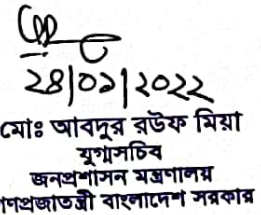 ২৪|০১|২০২২
মোঃ আবদুর রউফ মিয়া
যুগ্মসচিব
জনপ্রশাসন মন্ত্রণালয়
ণপ্রজাতন্ত্রী বাংলাদেশ সরকার